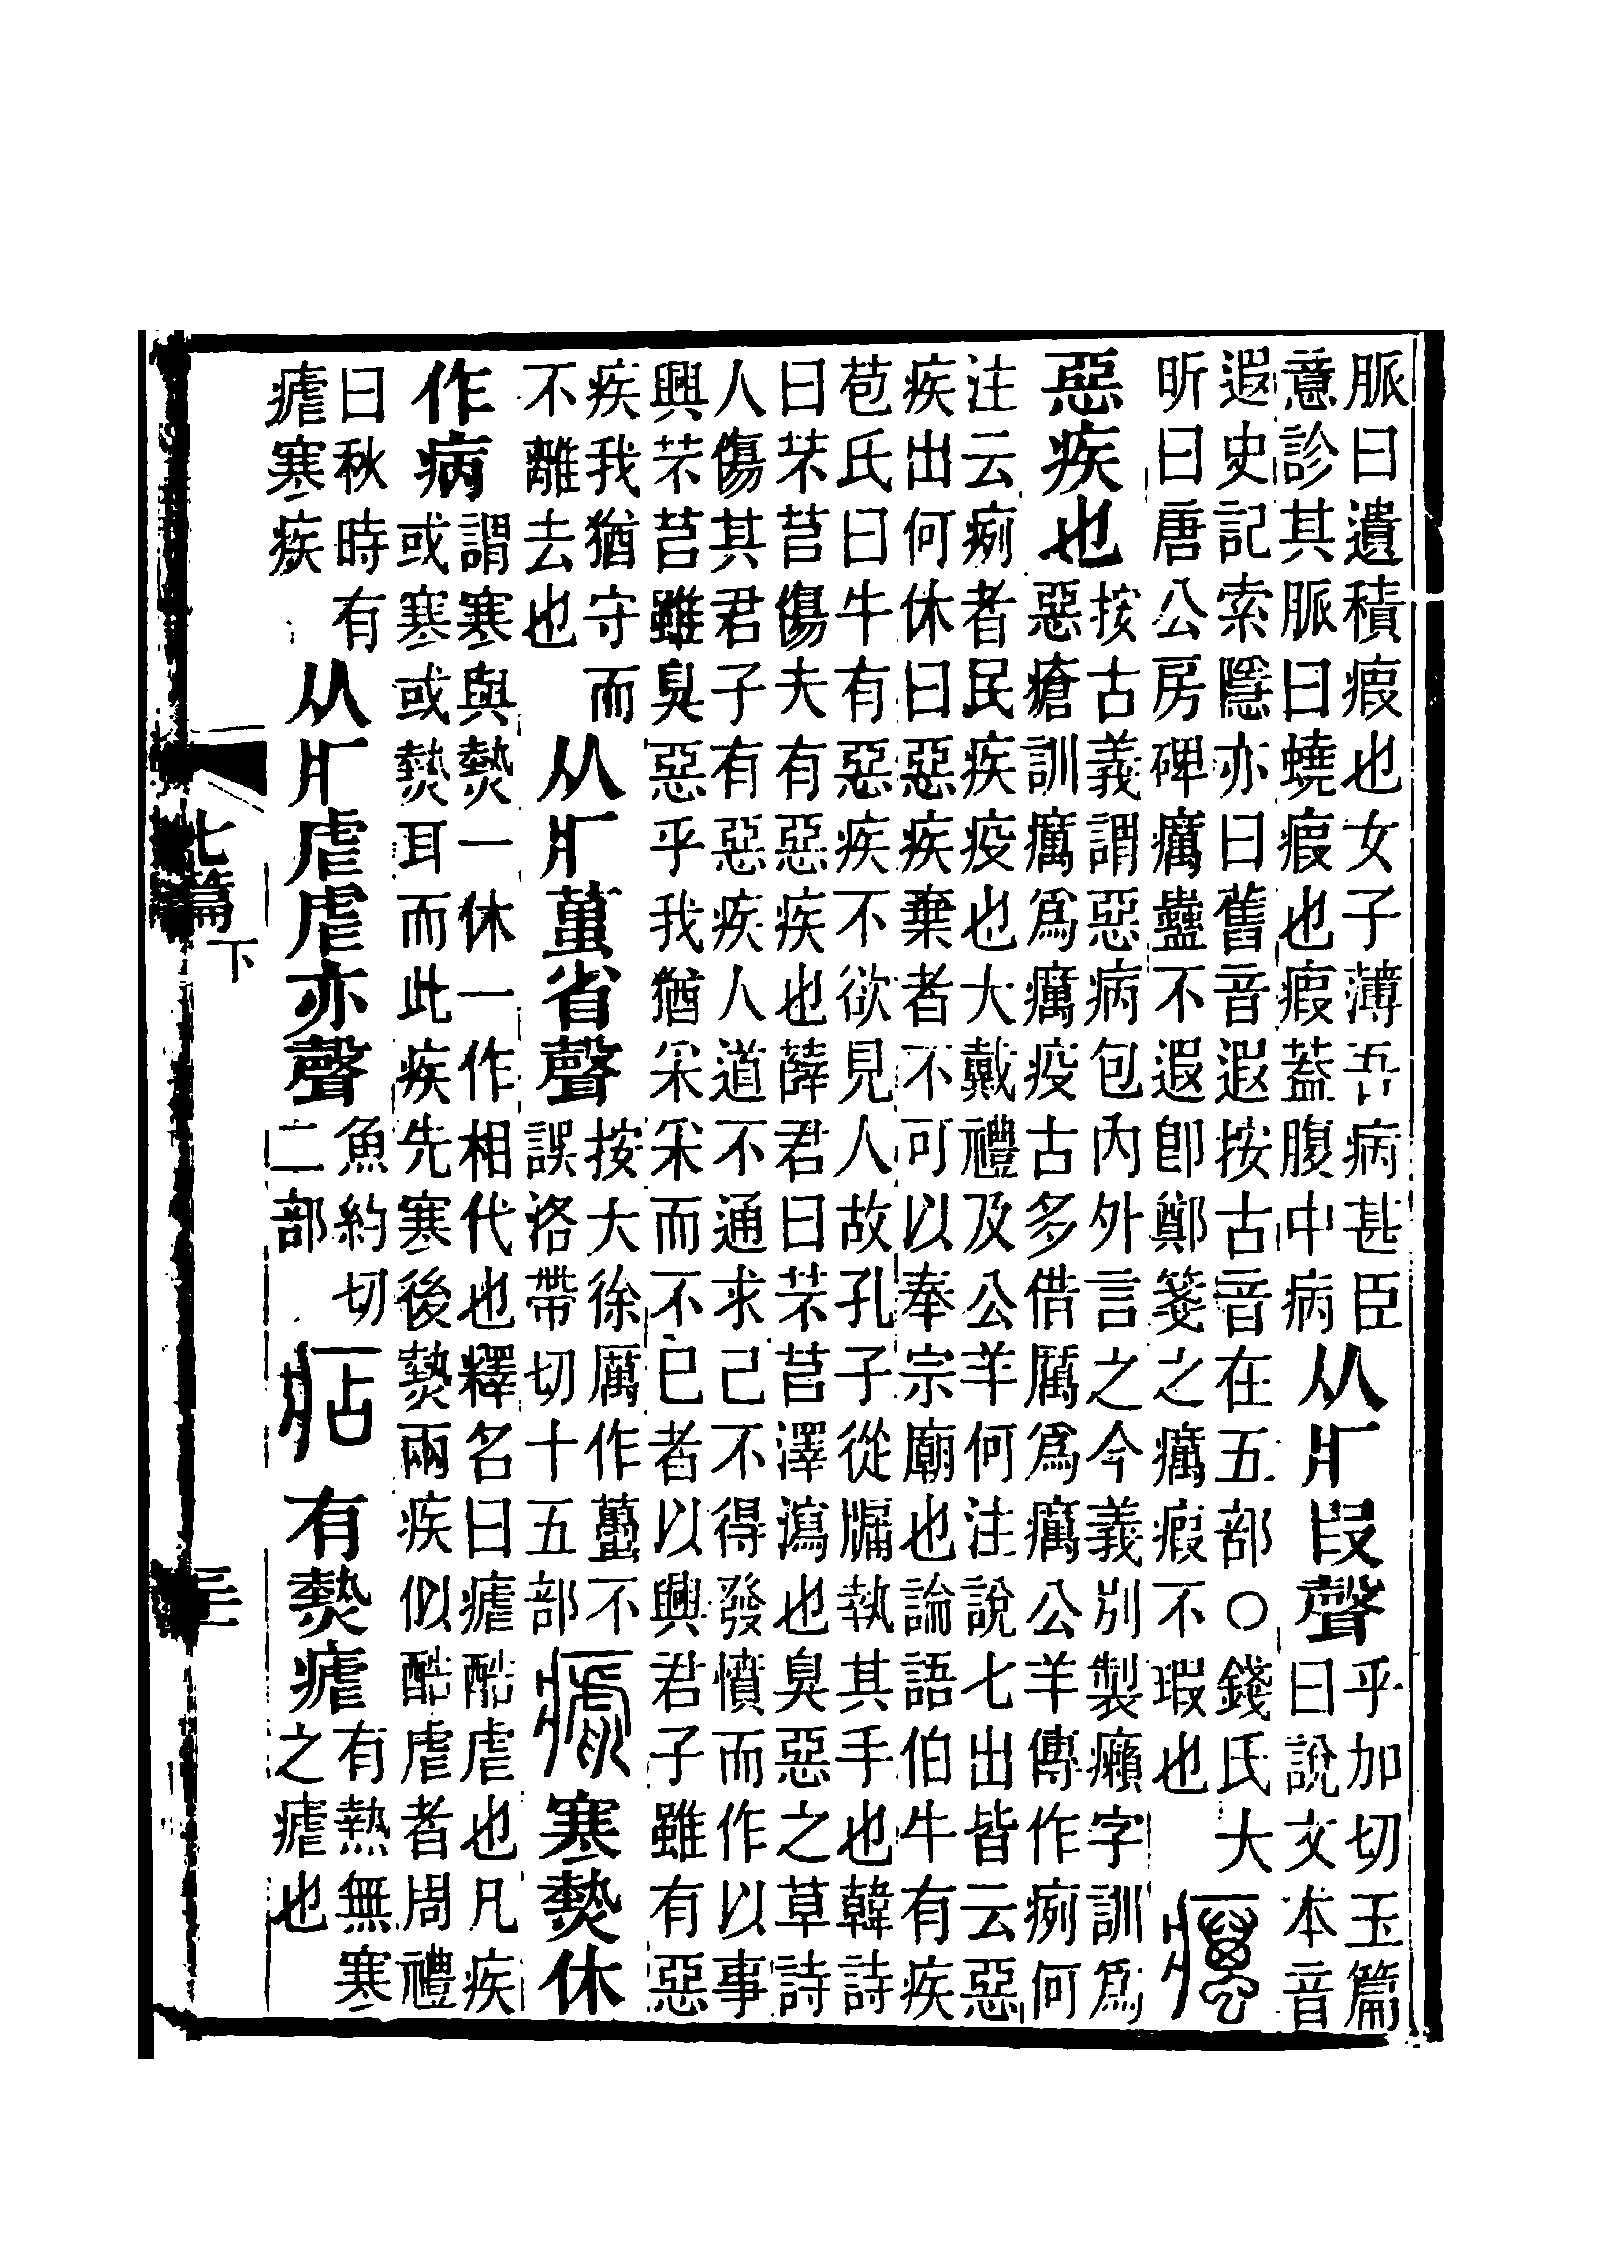 脈曰遺積瘕也女子薄吾病甚臣
意診其脈曰蟯瘕也瘕蓋腹中病
从疒叚聲
乎加切玉篇
曰說文本音
遐史記索隱亦曰舊音遐按古音在五部○錢氏大
昕曰唐公房碑癘蠱不遐卽鄭箋之癘瘕不瑕也
癘
惡疾也
按古義謂惡病包內外言之今義別製癩字訓爲
惡瘡訓癘爲癘疫古多借厲爲癘公羊傳作痢何
注云痢者民疾疫也大戴禮及公羊何注說七出皆云惡
疾出何休曰惡疾棄者不可以奉宗廟也論語伯牛有疾
苞氏曰牛有惡疾不欲見人故孔子從牖執其手也韓詩
曰芣苢傷夫有惡疾也薛君曰芣苢澤瀉也臭惡之草詩
人傷其君子有惡疾人道不通求己不得發憤而作以事
興芣苢雖臭惡乎我猶采采而不已者以興君子雖有惡
疾我猶守而
不離去也
从疒萬省聲
按大徐厲作蠆不
誤洛帶切十五部
瘧
寒熱休
作病
謂寒與熱一休一作相代也釋名曰瘧酷虐也凡疾
或寒或熱耳而此疾先寒後熱兩疾似酷虐者周禮
曰秋時有
瘧寒疾
从疒虐虐亦聲
魚約切
二部
痁
有熱瘧
有熱無寒
之瘧也
七篇下